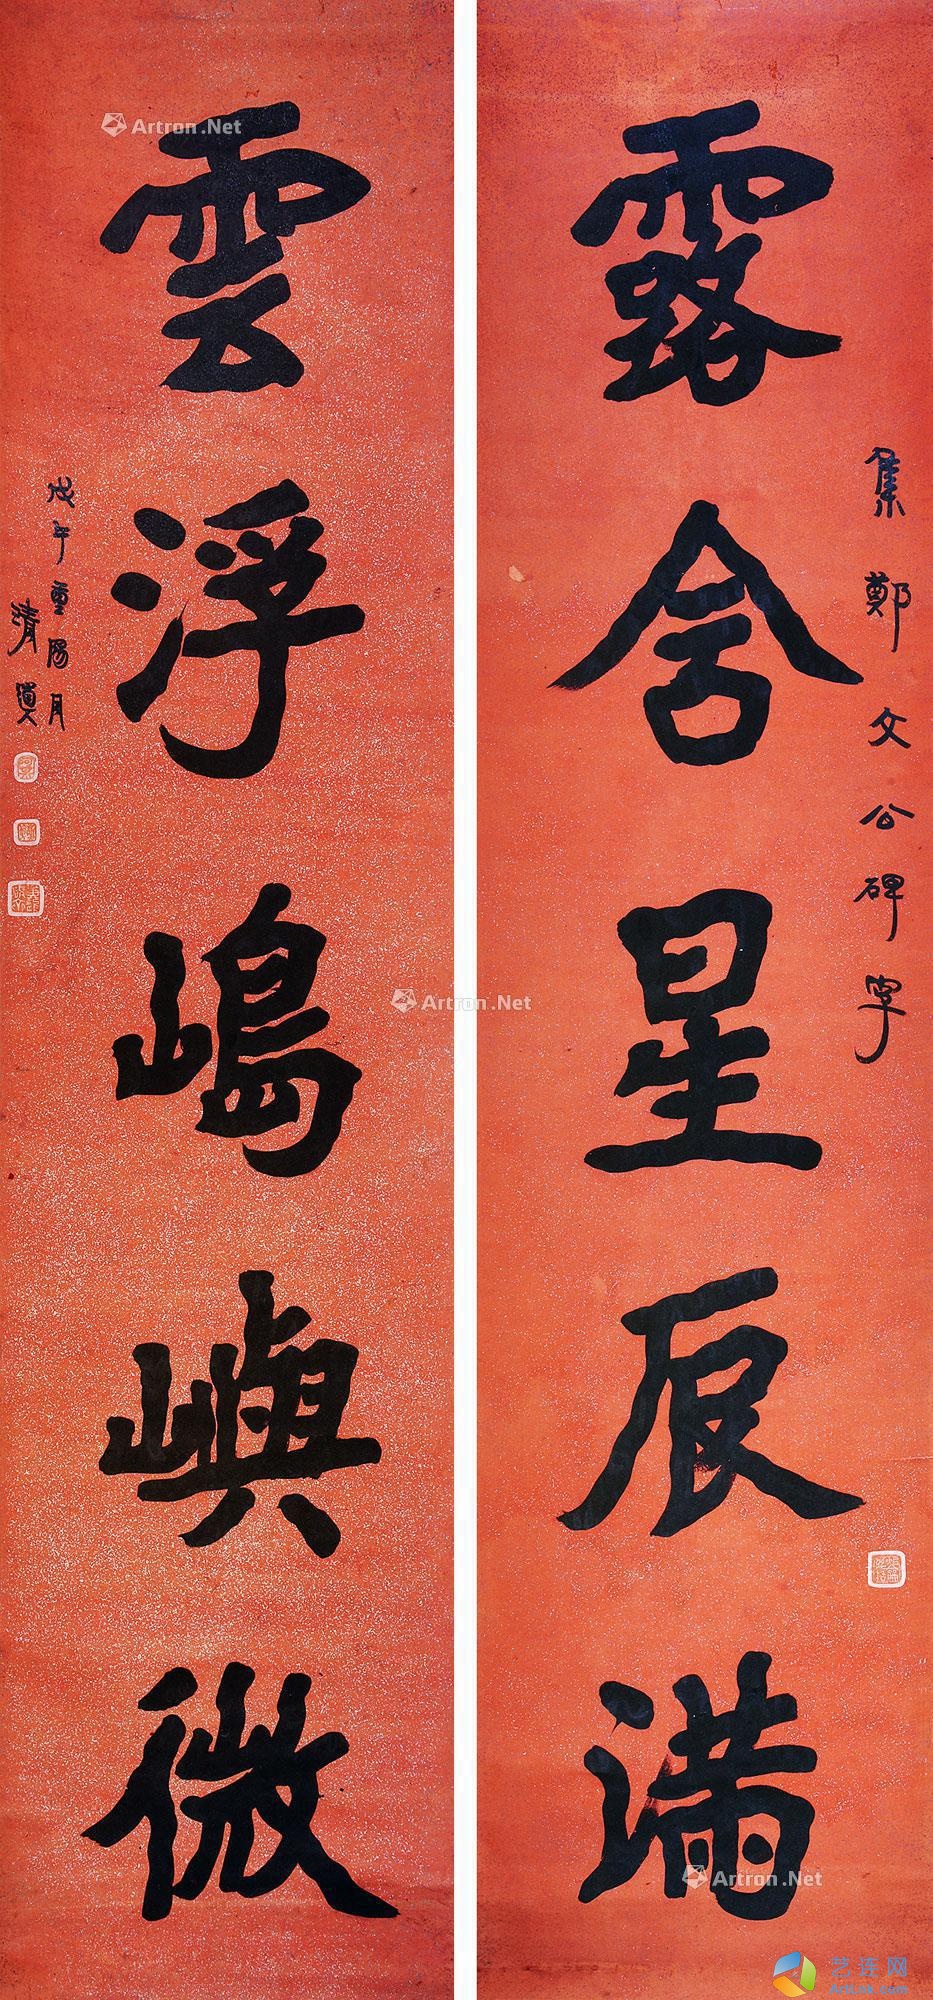 露含星辰滿
集鄭文公碑字
雲浮嶋嶼微
戊午重陽月
清道人
Artron.Net
Artron.Net
Artron.Net
艺连网
ArtLink.com